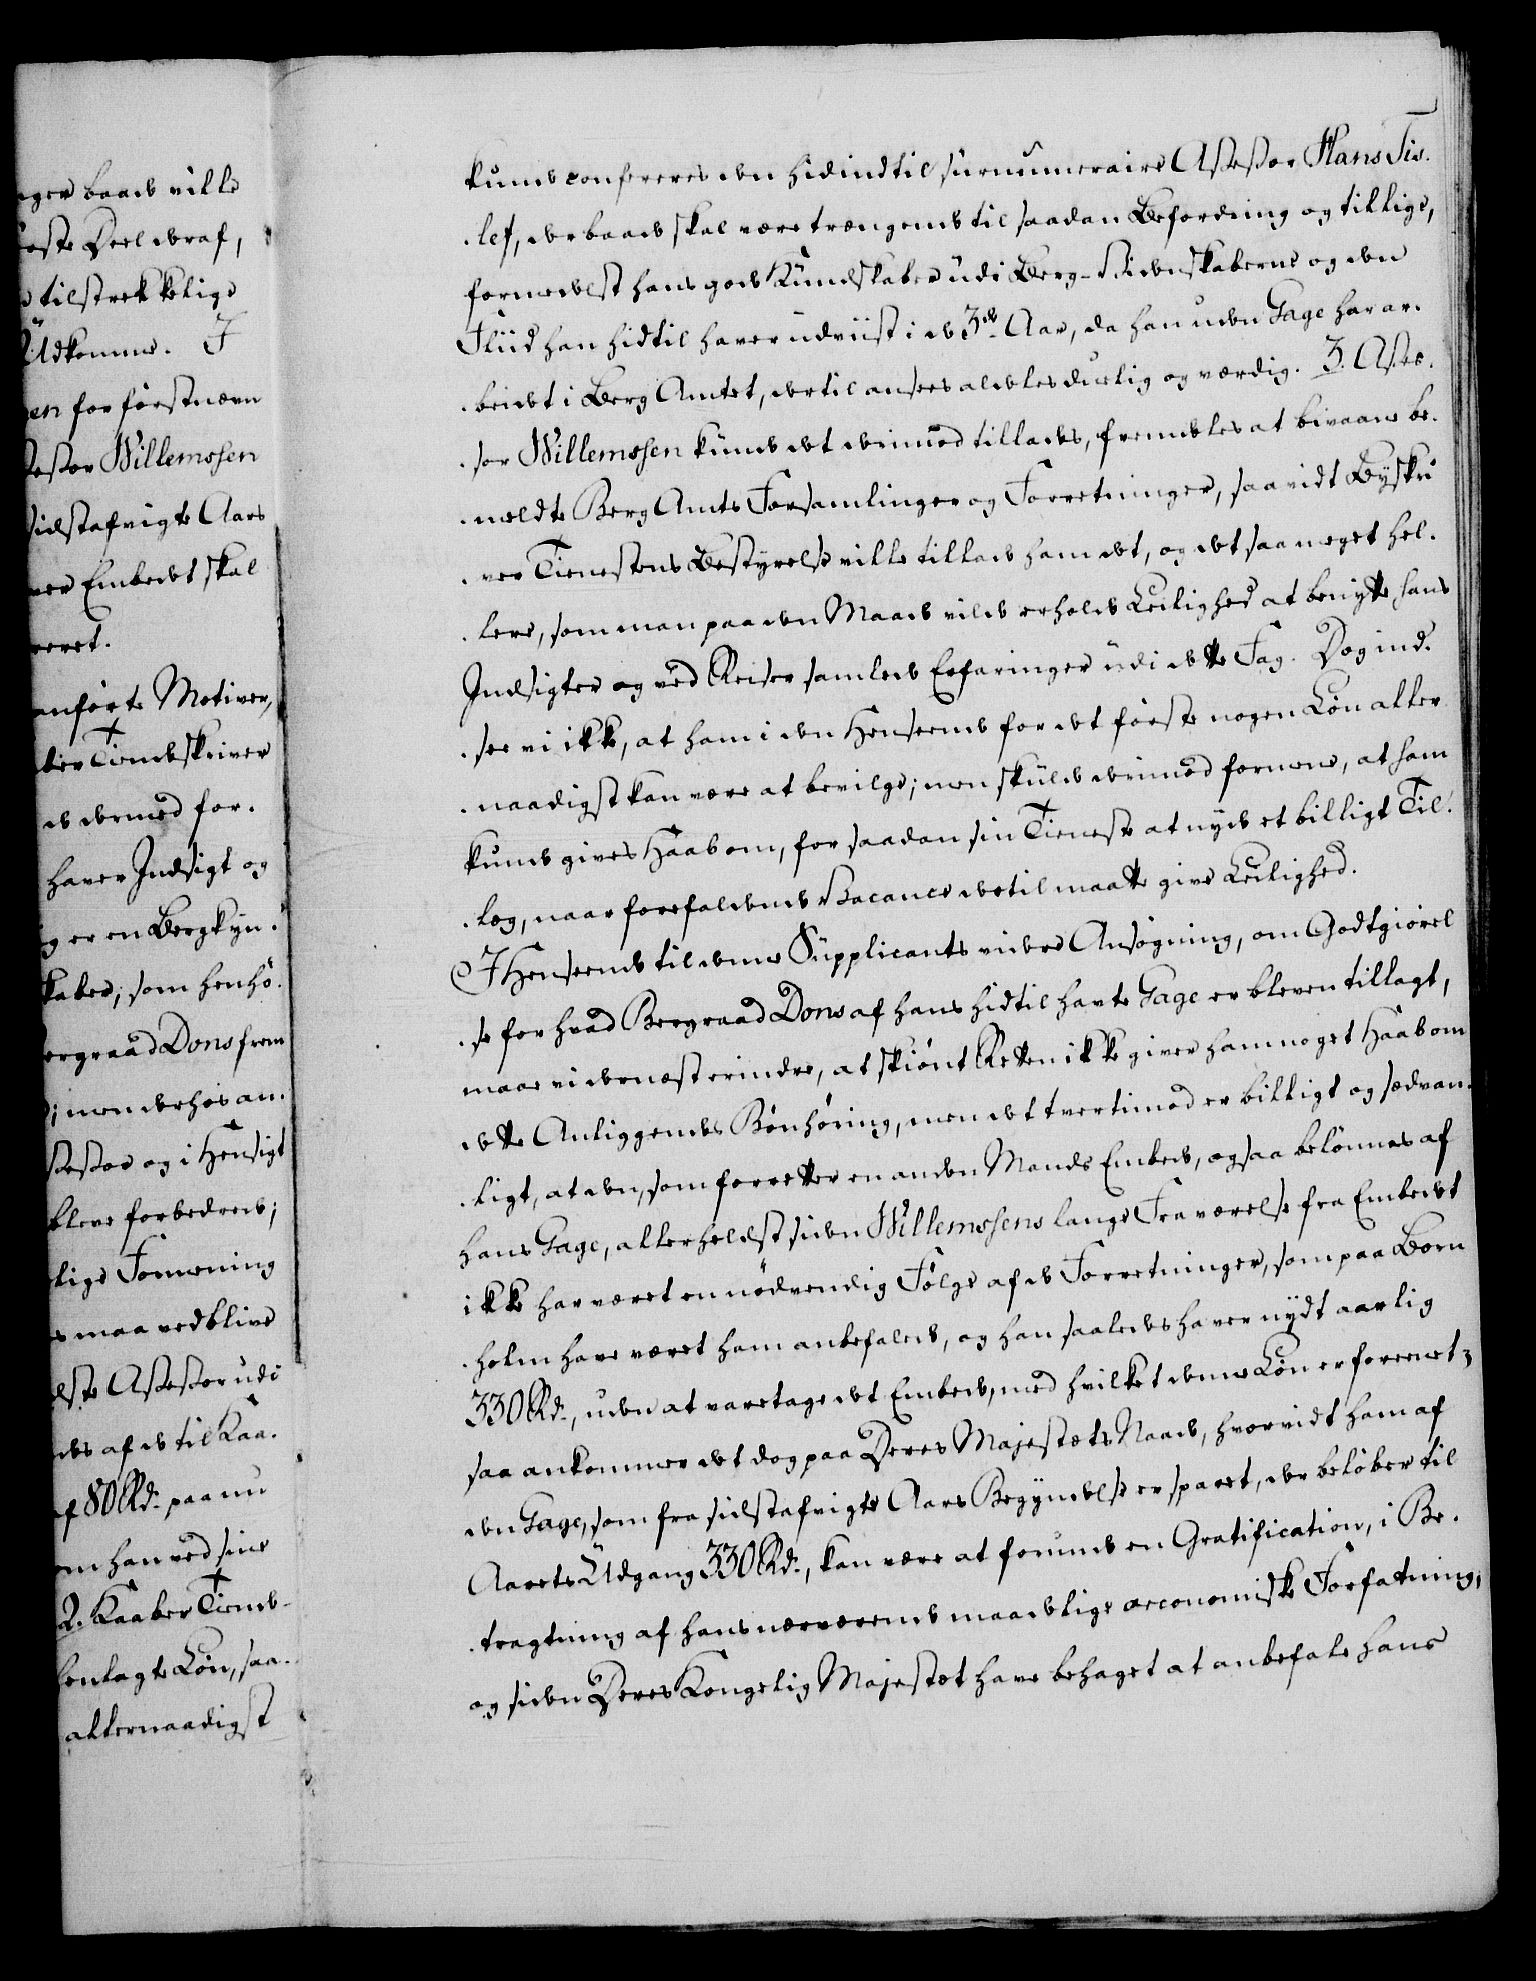 ager baade ville
ste Deel deraf,
tilstrekkelige
Udkomme. I
en for forstnævn
sessor Willemssen
sidstafvigte Aars
ver Embedet skal
veret.
anførte Motiver,
ber Tiendeskriver
de dermed for-
haver Indsigt og
g er en Bergkyn-
kaber, som henhø-
ergraad Dons frem
; men derhos an-
sessor og i Hensigt
bleve forbedrede;
lige Formening
s maa vedblive
dste Assessor udi
des af de til Kaa-
f 80 Rd. paa nu
om han ved sine
2. Kaaber Tiende-
benlagte Løn, saa-
allernaadigst
kunde confereres den hidindtil surnumeraire Assessor Hans Tis-
-lef, der baade skal være trængende til saadan Befordring og tillige,
formedelst hans gode Kundskaber udi Berg-Videnskaberne og den
Fliid han hidtil haver udviist i de 3de Aar, da han uden Gage har ar-
-beidet i Berg Amtet, dertil ansees aldeles duelig og værdig. 3. Asses-
-sor Willemssen kunde det derimod tillades, fremdeles at bivaane be-
-meldte Berg Amts Forsamlinger og Forretninger, saavidt Byskri
-ver Tienestens Bestyrelse ville tillade ham det, og det saa meget hel-
-lere, som man paa den Maade vilde erholde Leilighed at benytte hans
Indsigter og ved Reiser samlede Erfaringer udi dette Fag. Dog ind-
-see vi ikke, at ham i den Henseende for det første nogen Løn aller
-naadigst kan være at bevilge; men skulde derimod formene, at ham
kunde gives Haab om, for saadan sin Tieneste at nyde et billigt Til-
-læg, naar forefaldende Vacance dertil maatte give Leilighed.
I Henseende til denne Supplicants videre Ansøgning, om Godtgiørel
-se for hvad Bergraad Dons af hans hidtil havte Gage er bleven tillagt,
maae vi dernæst erindre, at skiønt Retten ikke giver ham noget Haab om
dette Anliggendes Bønhøring, men det tvertimod er billigt og sædvan-
-ligt, at den, som forretter en anden Mands Embede, ogsaa belønnes af
hans Gage, allerhelst siden Willemssens lange Fraværelse fra Embedet
ikke har været en nødvendig Følge af de Forretninger, som paa Born
-holm have været ham anbefalede, og han saaledes haver nydt aarlig
330 Rd., uden at varetage det Embede, med hvilket denne Løn er foreenet;
saa ankommer det dog paa Deres Majestæts Naade, hvorvidt ham af
den Gage, som fra sidstafvigte Aars Begyndelse er sparet, der beløber til
Aarets Udgang 330 Rd., kan være at forunde en Gratification, i Be-
-tragtning af hans nærværende maadelige oeconomiske Forfatning;
og siden Deres Kongelig Majestæt have behaget at anbefale hans